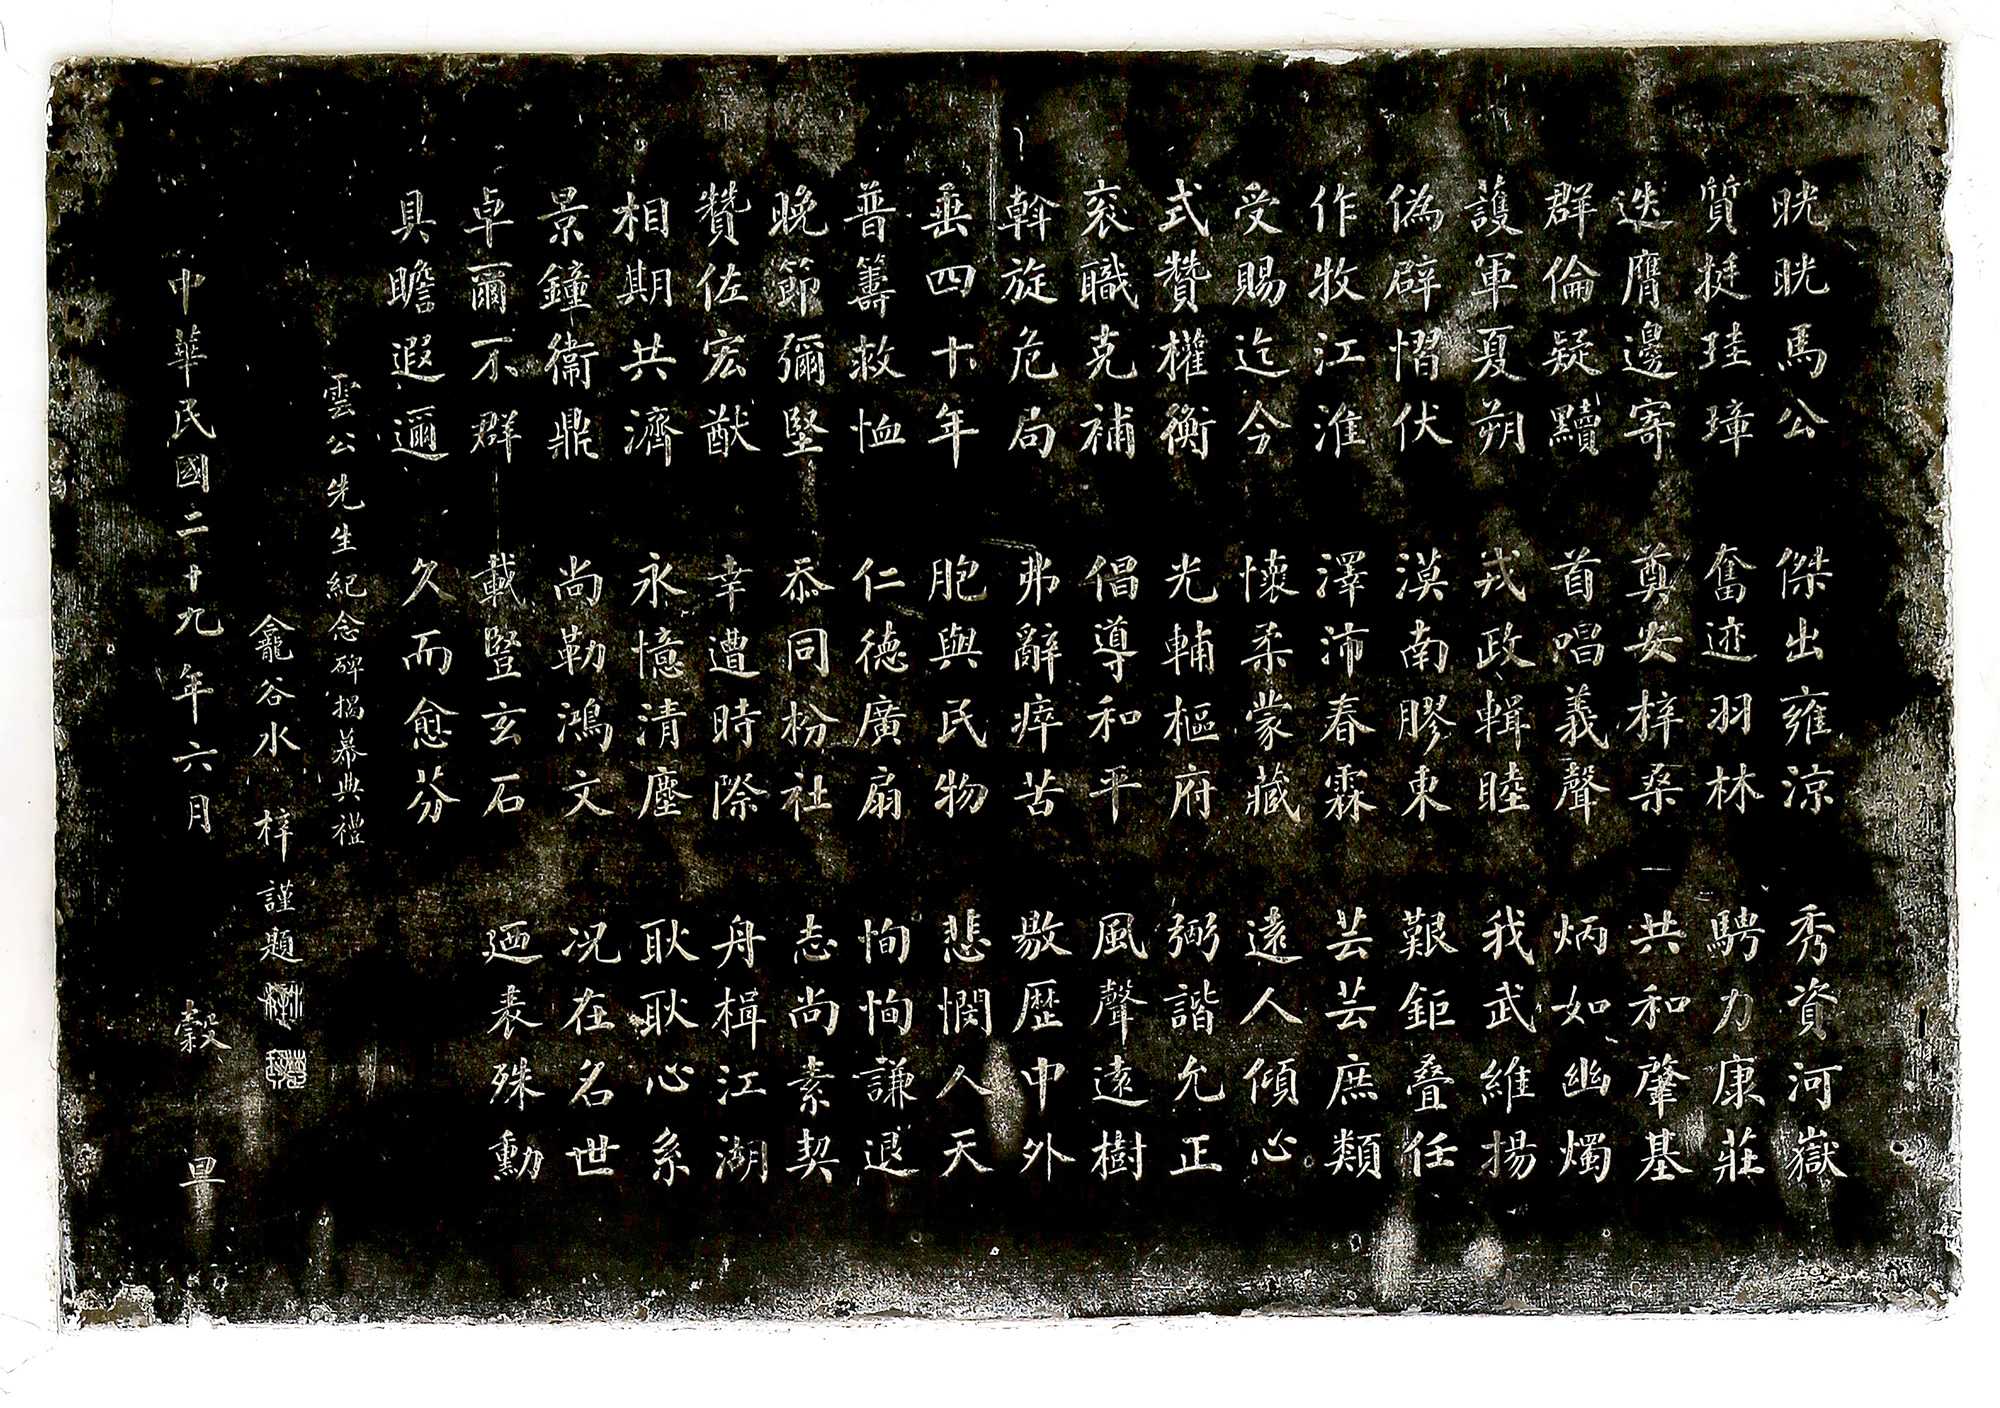 晄晄馬公　傑出雍涼　秀資河嶽
質挺珪璋　奮迹羽林　騁力康莊
迭膺邊寄　奠安梓桑　共和肇基
群倫疑黷　首唱義聲　炳如幽燭
護軍夏朔　戎政輯睦　我武維揚
偽辟慴伏　漠南膠東　艱鉅叠任
作牧江淮　澤沛春霖　芸芸庶類
受賜迄今　懷柔蒙藏　遠人傾心
式贊權衡　光輔樞府　弼諧允正
袞職克補　倡導和平　風聲遠樹
斡旋危局　弗辭瘁苦　敭歷中外
垂四十年　胞與民物　悲憫人天
普籌救恤　仁德廣扇　恂恂謙退
晚節彌堅　忝同枌社　志尚素契
贊佐宏猷　幸遭時際　舟楫江湖
相期共濟　永憶清塵　耿耿心系
景鐘衛鼎　尚勒鴻文　况在名世
卓爾不群　載豎玄石　迺表殊勳
具瞻遐邇　久而愈芬
雲公先生紀念碑揭幕典禮
龕谷水梓謹題
中華民國二十九年六月　穀旦